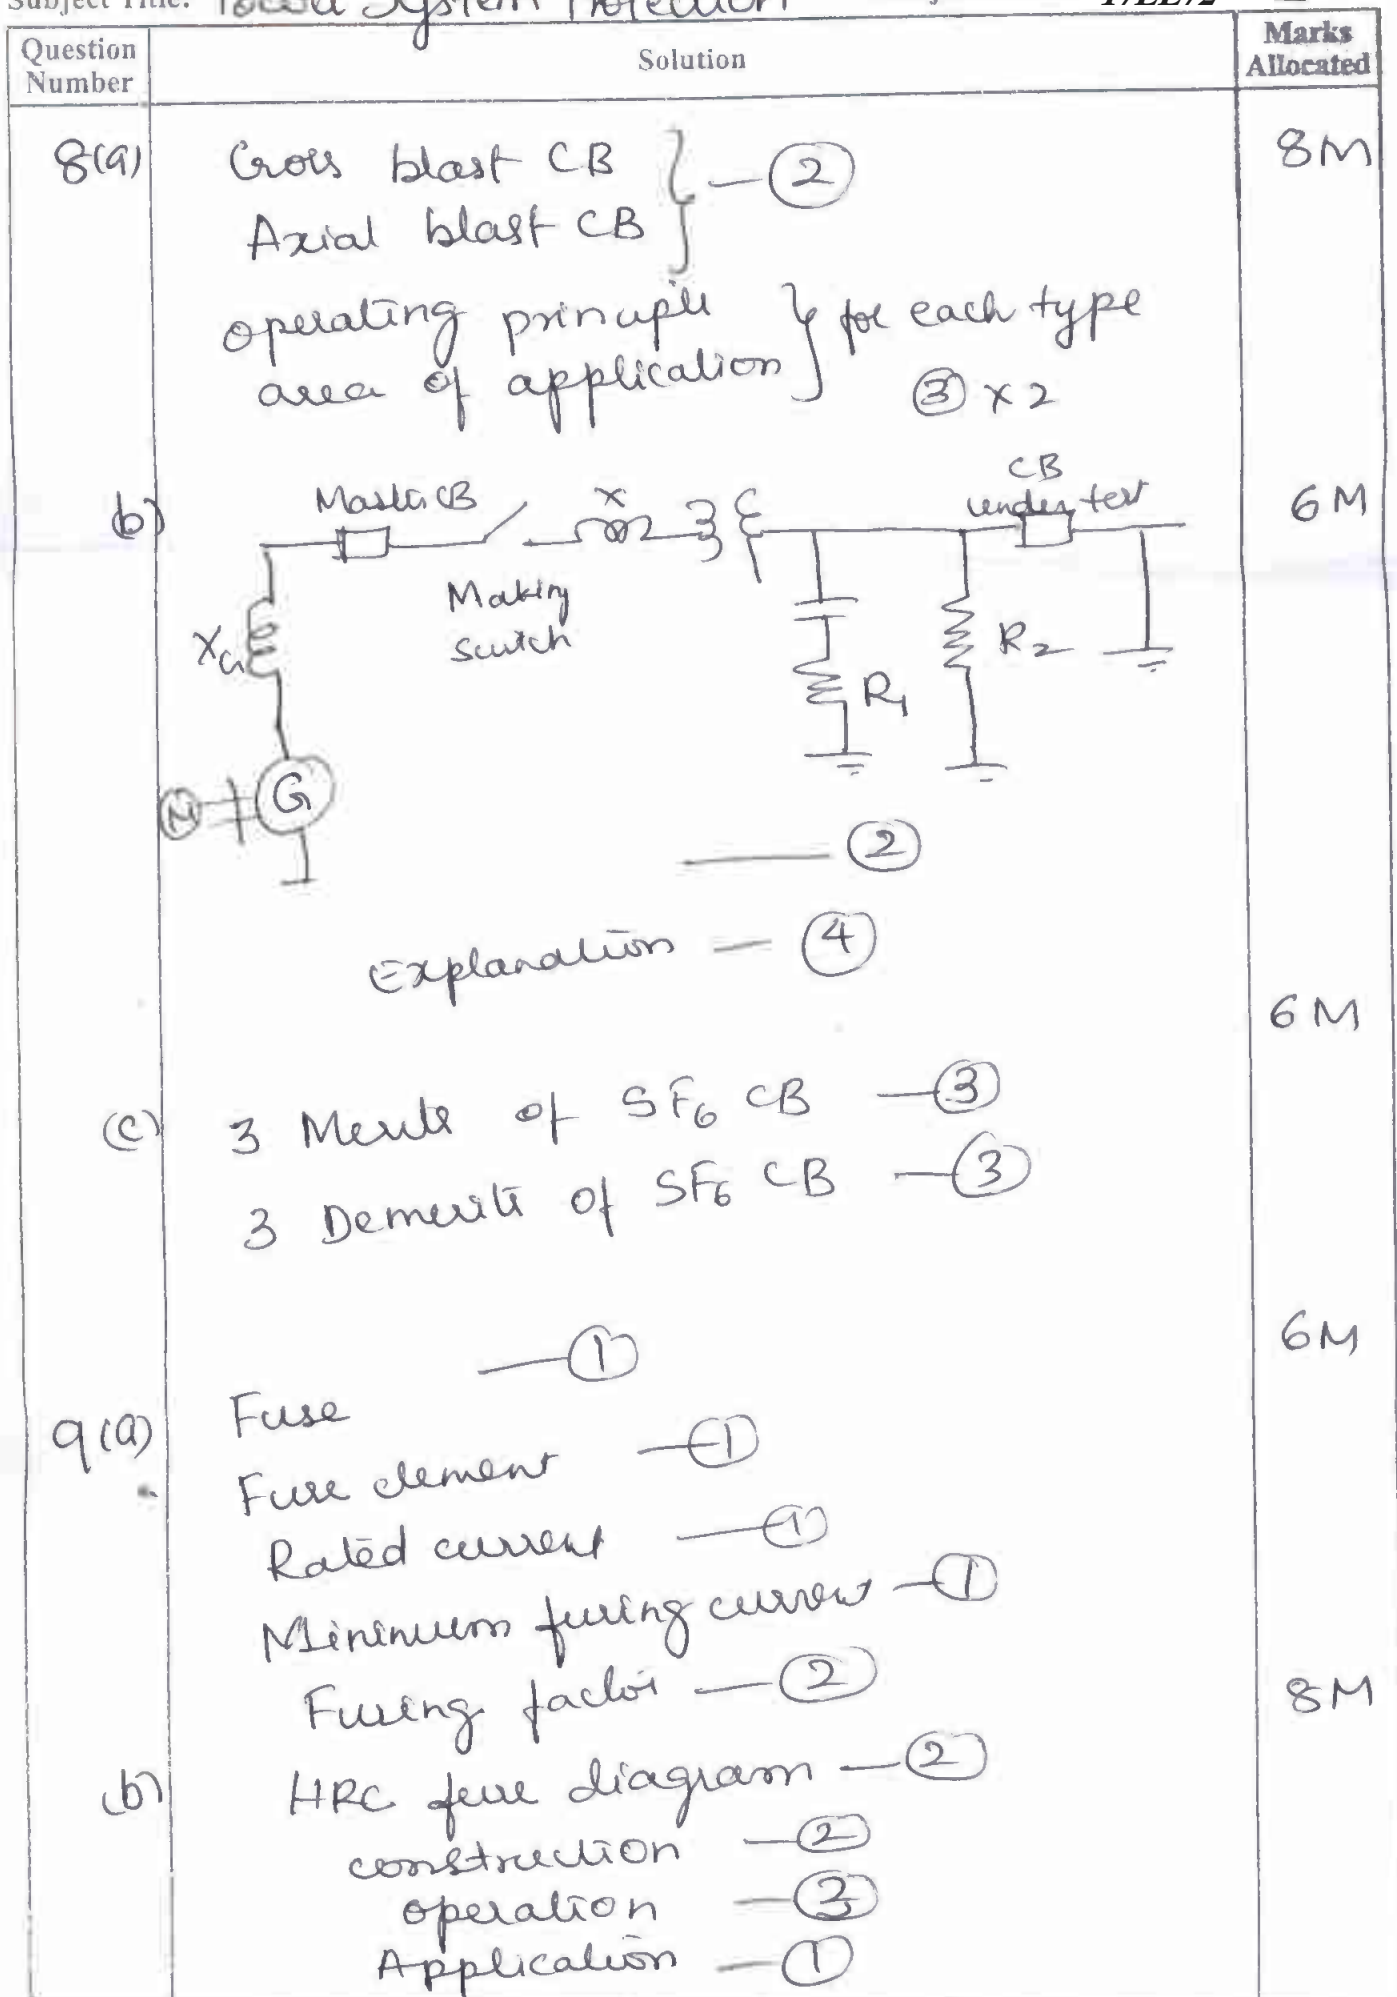 Subject Title: Power System Protection 17EE72
Question Number Solution Marks Allocated
8(a) Cross blast CB — (2) 8M
Axial blast CB
operating principle for each type
area of application (3) x 2
(b) Master CB x CB under test 6M
Making switch
XG
R1 R2
M G
(2)
Explanation — (4)
6M
(c) 3 Merits of SF6 CB — (3)
3 Demerits of SF6 CB — (3)
6M
— (1)
9(a) Fuse
Fuse element — (1)
Rated current — (1)
Minimum fusing current — (1)
Fusing factor — (2) 8M
(b) HRC fuse diagram — (2)
construction — (2)
operation — (3)
Application — (1)